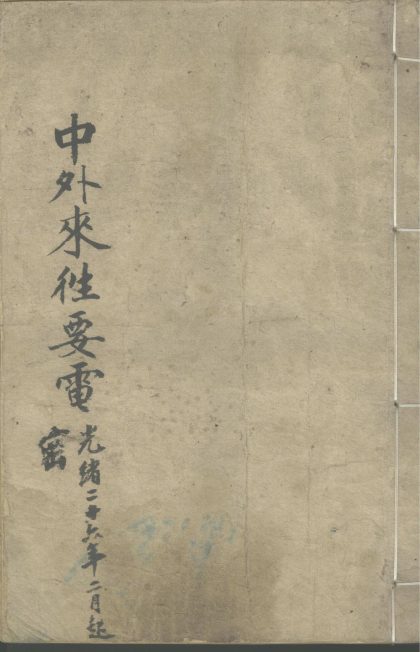 中外來徃要電
光緒二十六年二月起
密